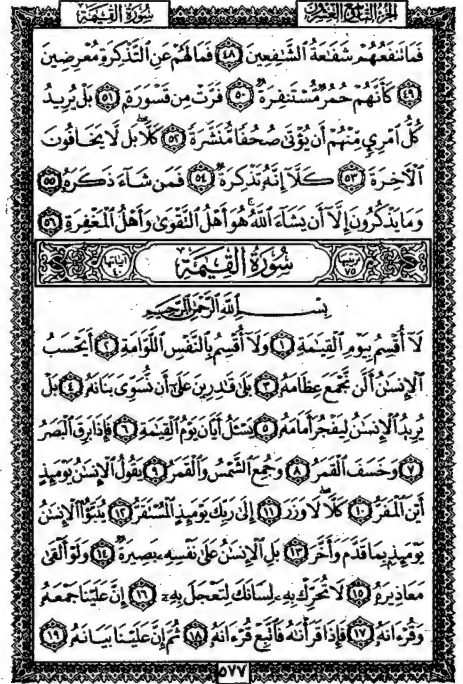 سُورَةُ القِيَامَةِ
الجزء التاسع والعشرون
فَمَا تَنفَعُهُمْ شَفَٰعَةُ ٱلشَّٰفِعِينَ ٤٨ فَمَا لَهُمْ عَنِ ٱلتَّذْكِرَةِ مُعْرِضِينَ
٤٩ كَأَنَّهُمْ حُمُرٌ مُّسْتَنفِرَةٌ ٥٠ فَرَّتْ مِن قَسْوَرَةٍ ٥١ بَلْ يُرِيدُ
كُلُّ ٱمْرِئٍ مِّنْهُمْ أَن يُؤْتَىٰ صُحُفًا مُّنَشَّرَةً ٥٢ كَلَّا بَل لَّا يَخَافُونَ
ٱلْءَاخِرَةَ ٥٣ كَلَّآ إِنَّهُۥ تَذْكِرَةٌ ٥٤ فَمَن شَآءَ ذَكَرَهُۥ ٥٥
وَمَا يَذْكُرُونَ إِلَّآ أَن يَشَآءَ ٱللَّهُ هُوَ أَهْلُ ٱلتَّقْوَىٰ وَأَهْلُ ٱلْمَغْفِرَةِ ٥٦
ترتيبها ٧٥ سُورَةُ القِيَامَةِ آياتها ٤٠
بِسْمِ ٱللَّهِ ٱلرَّحْمَٰنِ ٱلرَّحِيمِ
لَآ أُقْسِمُ بِيَوْمِ ٱلْقِيَٰمَةِ ١ وَلَآ أُقْسِمُ بِٱلنَّفْسِ ٱللَّوَّامَةِ ٢ أَيَحْسَبُ
ٱلْإِنسَٰنُ أَلَّن نَّجْمَعَ عِظَامَهُۥ ٣ بَلَىٰ قَٰدِرِينَ عَلَىٰٓ أَن نُّسَوِّىَ بَنَانَهُۥ ٤ بَلْ
يُرِيدُ ٱلْإِنسَٰنُ لِيَفْجُرَ أَمَامَهُۥ ٥ يَسْـَٔلُ أَيَّانَ يَوْمُ ٱلْقِيَٰمَةِ ٦ فَإِذَا بَرِقَ ٱلْبَصَرُ
٧ وَخَسَفَ ٱلْقَمَرُ ٨ وَجُمِعَ ٱلشَّمْسُ وَٱلْقَمَرُ ٩ يَقُولُ ٱلْإِنسَٰنُ يَوْمَئِذٍ
أَيْنَ ٱلْمَفَرُّ ١٠ كَلَّا لَا وَزَرَ ١١ إِلَىٰ رَبِّكَ يَوْمَئِذٍ ٱلْمُسْتَقَرُّ ١٢ يُنَبَّؤُا۟ ٱلْإِنسَٰنُ
يَوْمَئِذٍۭ بِمَا قَدَّمَ وَأَخَّرَ ١٣ بَلِ ٱلْإِنسَٰنُ عَلَىٰ نَفْسِهِۦ بَصِيرَةٌ ١٤ وَلَوْ أَلْقَىٰ
مَعَاذِيرَهُۥ ١٥ لَا تُحَرِّكْ بِهِۦ لِسَانَكَ لِتَعْجَلَ بِهِۦٓ ١٦ إِنَّ عَلَيْنَا جَمْعَهُۥ
وَقُرْءَانَهُۥ ١٧ فَإِذَا قَرَأْنَٰهُ فَٱتَّبِعْ قُرْءَانَهُۥ ١٨ ثُمَّ إِنَّ عَلَيْنَا بَيَانَهُۥ ١٩
٥٧٧